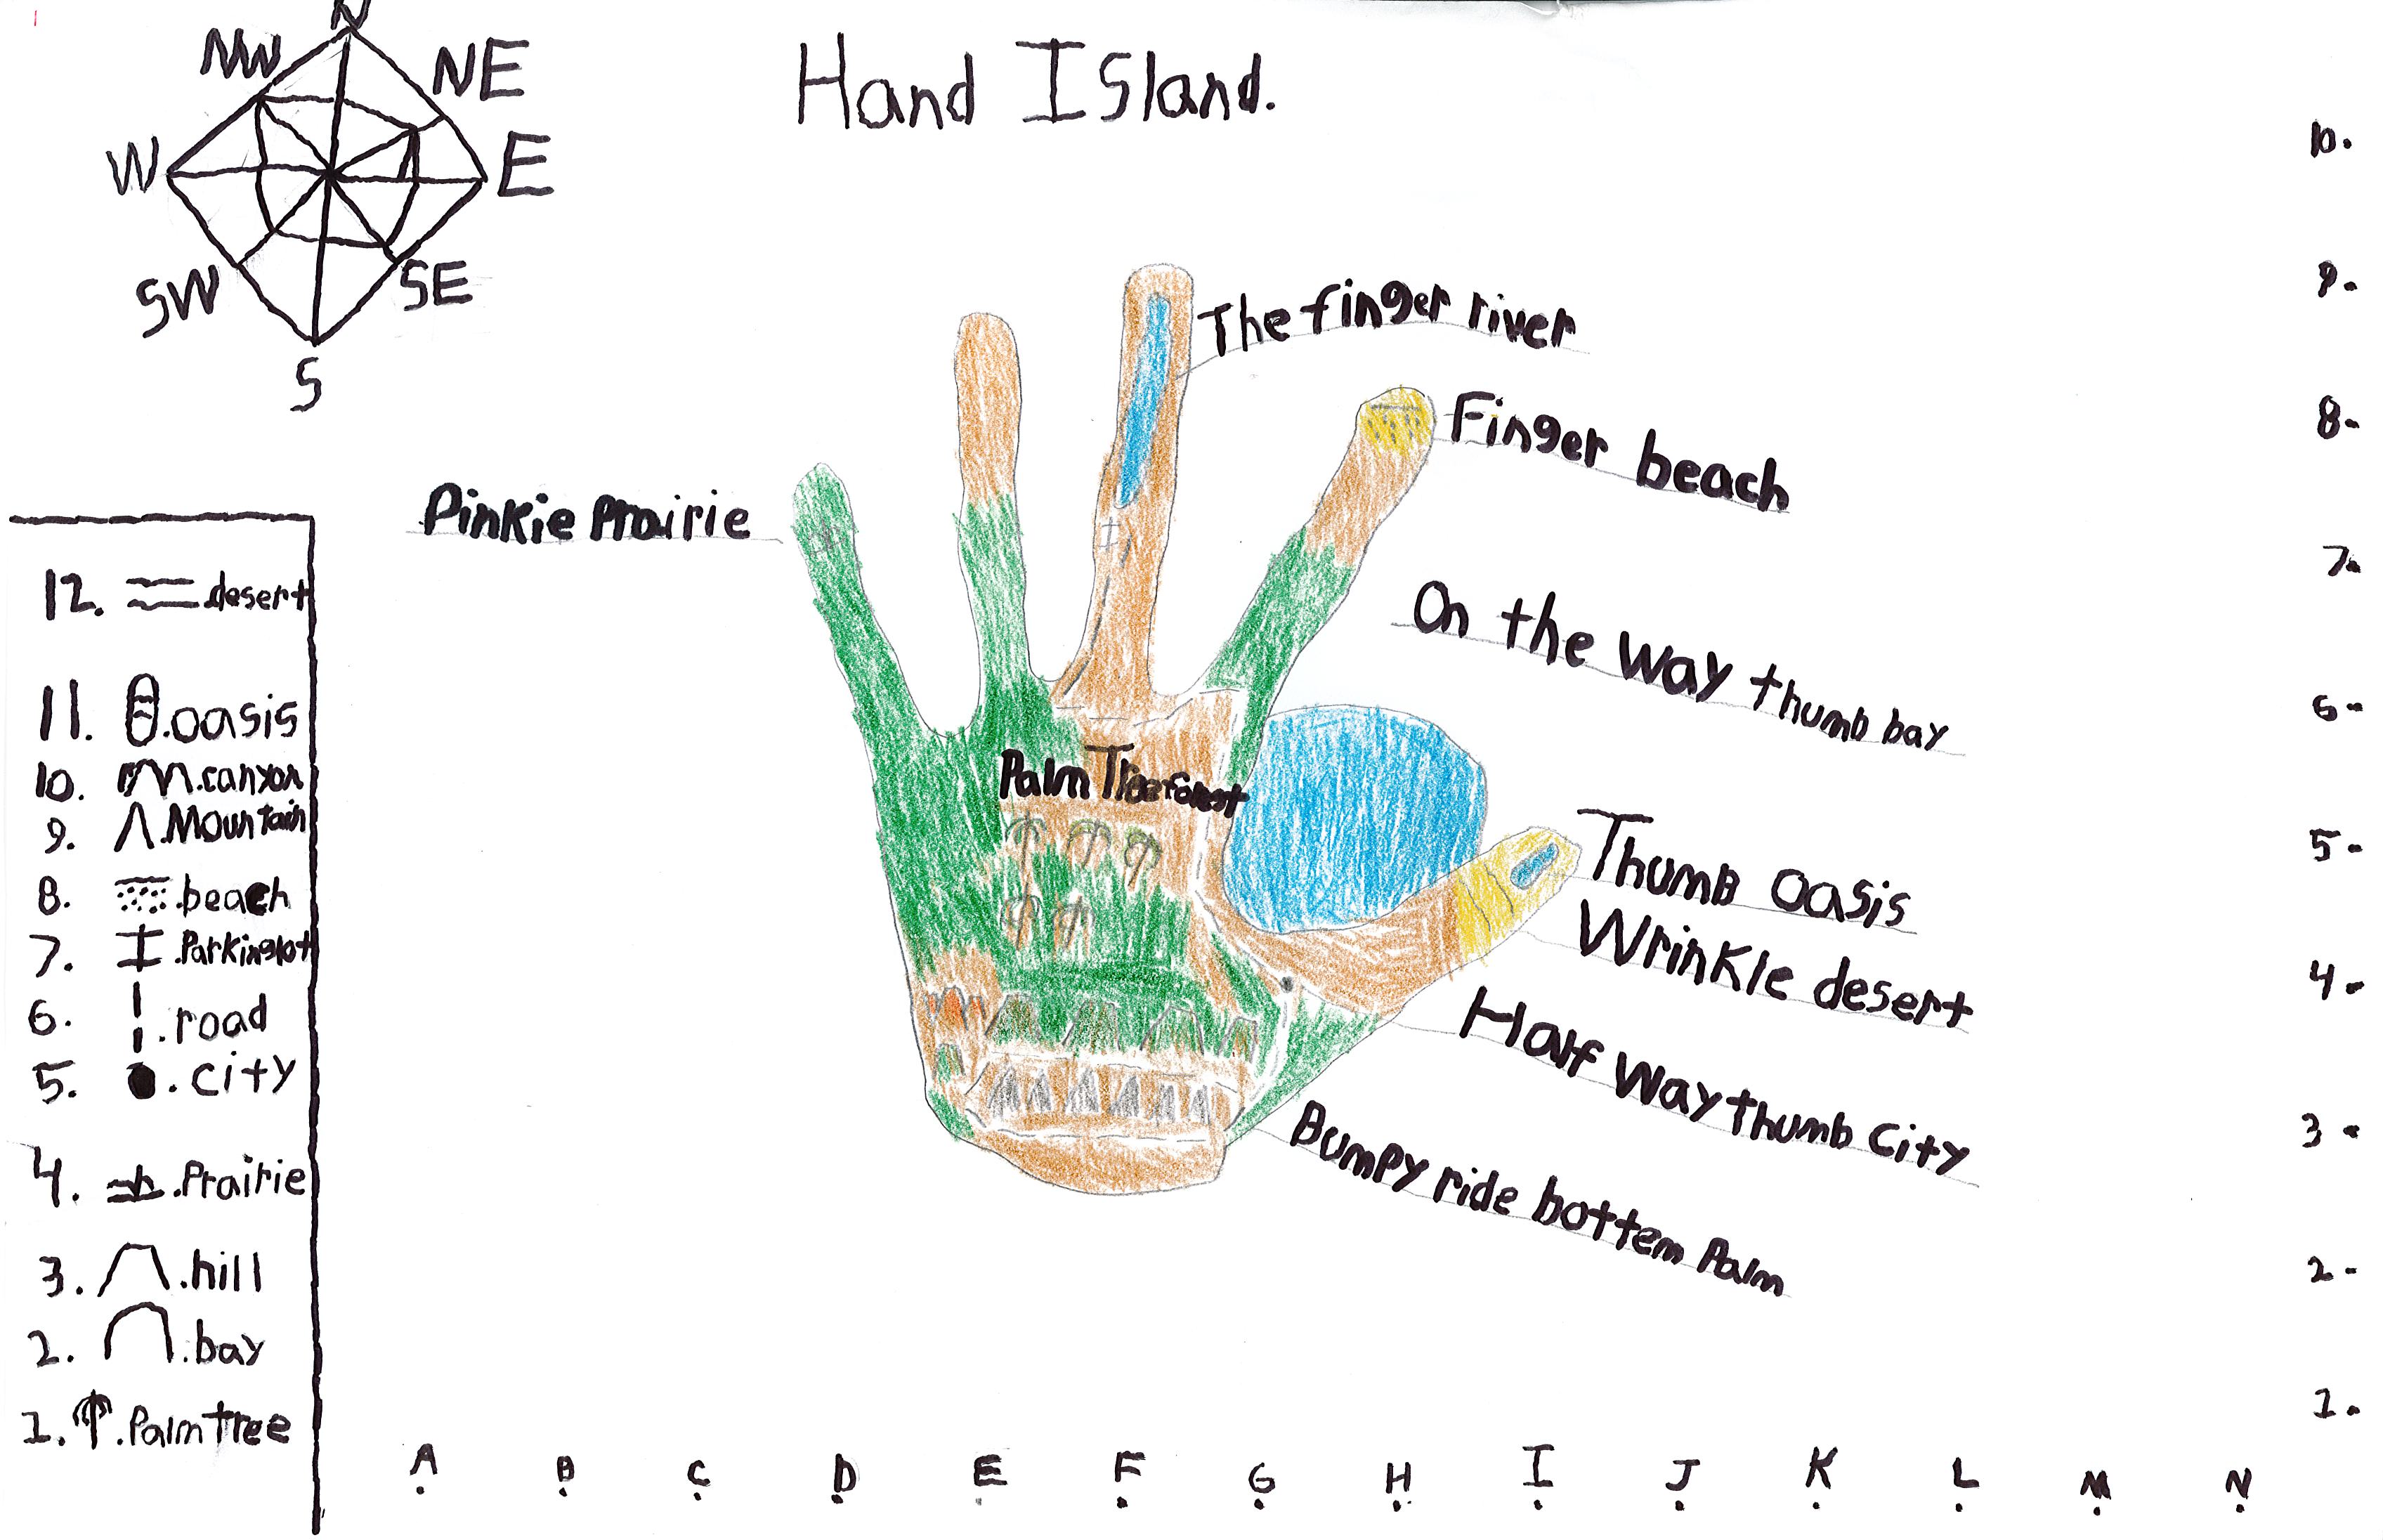 N
NW
NE
W
E
SW
SE
S
Hand Island.
The finger river
Finger beach
Pinkie Prairie
On the way thumb bay
Palm Tree forest
Thumb Oasis
Wrinkle desert
Half Way thumb City
Bumpy ride bottem Palm
12. desert
11. .oasis
10. .canyon
9. .Mountain
8. .beach
7. .Parkinglot
6. .road
5. .city
4. .Prairie
3. .hill
2. .bay
1. .Palm tree
10.
9.
8.
7.
6.
5.
4.
3.
2.
1.
A B C D E F G H I J K L M N